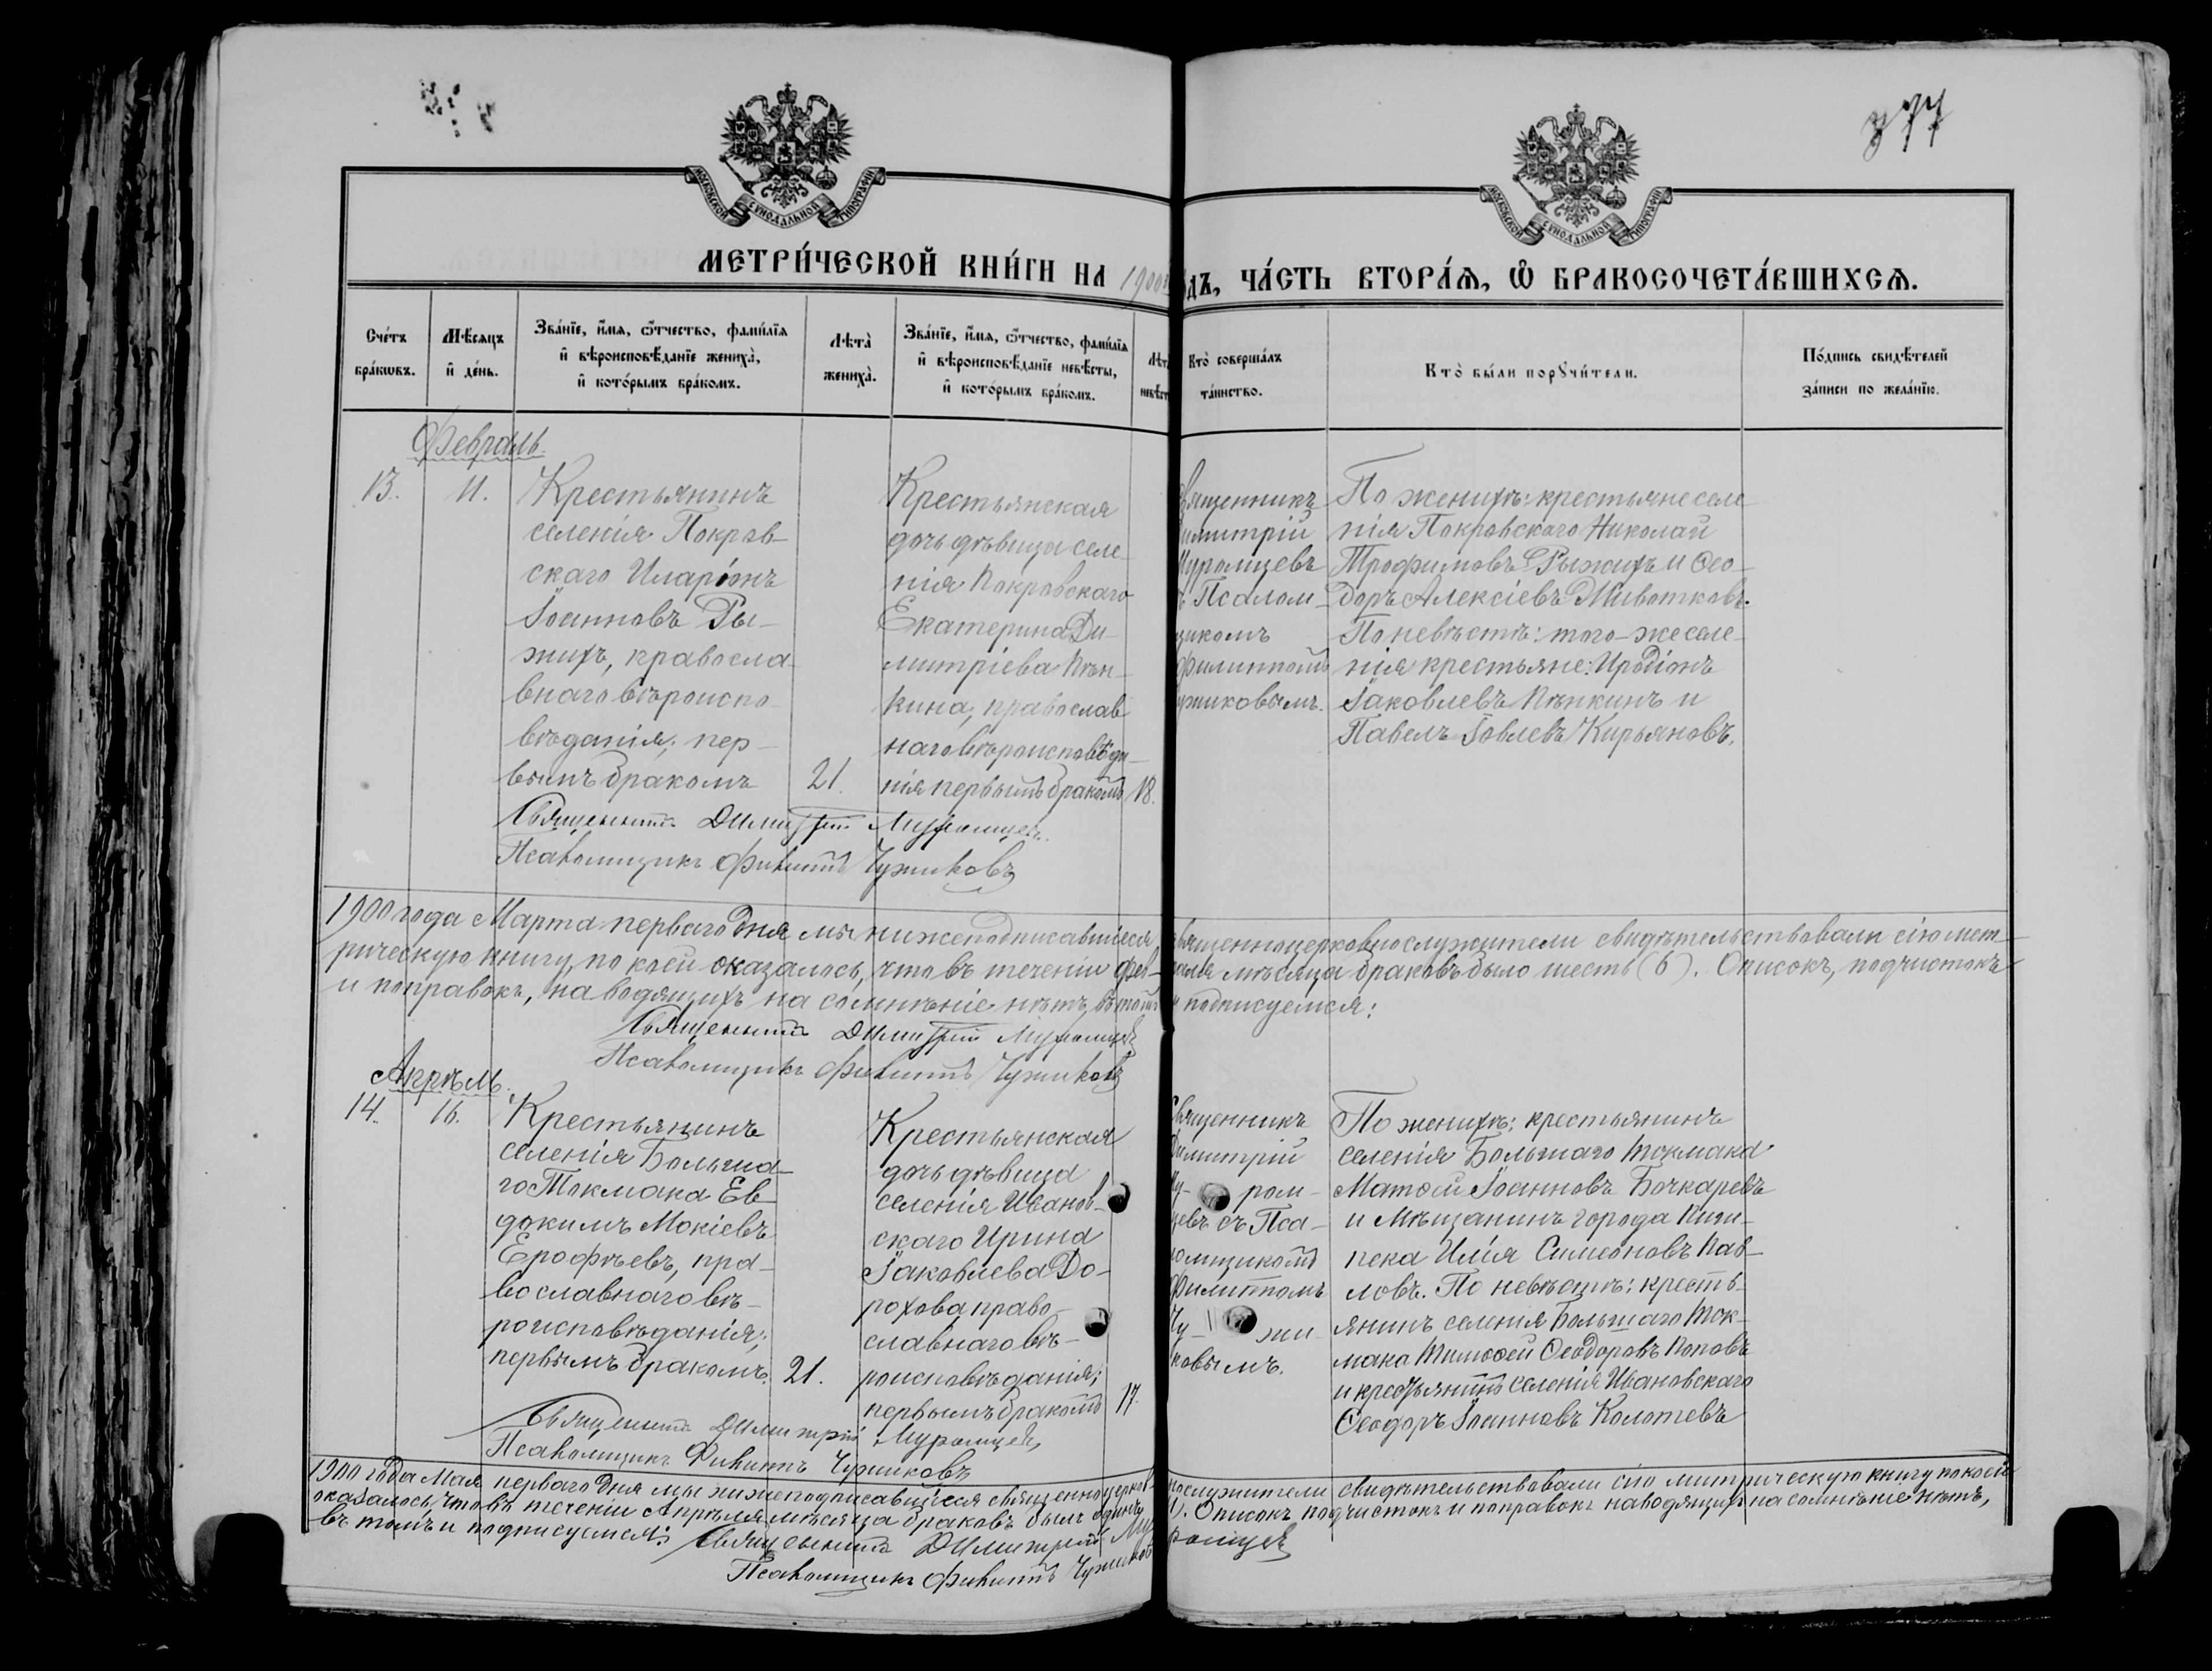 МОСКОВСКОЙ СѴНОДАЛЬНОЙ ТИПОГРАФІИ
МОСКОВСКОЙ СѴНОДАЛЬНОЙ ТИПОГРАФІИ
МЕТРИ́ЧЕСКОЙ КНИ́ГИ НА 1900
ДЪ, ЧА́СТЬ ВТОРА́Ѧ, Ѽ БРАКОСОЧЕТА́ВШИХСѦ.
Сче́тъ
бра́кѡвъ.
Мѣ́сѧцъ
и҆ де́нь.
Зва́нїе, и҆́мѧ, ѻ҆́тчество, фами́лїѧ
и҆ вѣроисповѣ́данїе жениха̀,
и҆ кото́рымъ бра́комъ.
Лѣ́та̀
жениха̀.
Зва́нїе, и҆́мѧ, ѻ҆́тчество, фами́лїѧ
и҆ вѣроисповѣ́данїе невѣ́сты,
и҆ кото́рымъ бра́комъ.
Кто̀ соверша́лъ
та́инство.
Кто̀ бы́ли порꙋчи́тели.
По́дпись свидѣ́телей
за́писи по жела́нїю.
Февраль.
13.
11.
Крестьянинъ
селенія Покров-
скаго Иларіонъ
Іоанновъ Ры-
жихъ, правосла-
внаго вѣроиспо-
вѣданія; пер-
вымъ бракомъ
21.
Крестьянская
дочь дѣвица селе-
нія Покровскаго
Екатерина Ди-
митріева Пѣн-
кина, православ
наго вѣроисповѣда-
нія первымъ бракомъ
18.
Священникъ Димитрій Муромцевъ
Псаломщикъ Филиппъ Чужиковъ
священникъ
имитрій
Муромцевъ
ъ Псалом-
щикомъ
Филиппомъ
ужиковымъ.
По женихѣ: крестьяне селе-
нія Покровскаго Николай
Трофимовъ Рыжихъ и Ѳео-
доръ Алексіевъ Животковъ.
По невѣстѣ: того-же селе-
нія крестьяне: Иродіонъ
Іаковлевъ Пѣнкинъ и
Павелъ Іовлевъ Кирьяновъ.
1900 года Марта перваго дня мы нижеподписавшіеся священноцерковнослужители свидѣтельствовали сію мет-
рическую книгу, по коей оказалось, что въ теченіи фев-раля мѣсяца браковъ было шесть (6). Описокъ, подчистокъ
и поправокъ, наводящихъ на сомнѣніе нѣтъ, въ томъ и подписуемся:
Священникъ Димитрій Муромцевъ
Псаломщикъ Филиппъ Чужиковъ
Апрѣль.
14.
16.
Крестьянинъ
селенія Больша-
го Токмака Ев-
докимъ Мокіевъ
Ерофѣевъ, пра-
вославнаго вѣ-
роисповѣданія;
первымъ бракомъ.
21.
Крестьянская
дочь дѣвица
селенія Иванов-
скаго Ирина
Іаковлева До-
рохова право-
славнаго вѣ-
роисповѣданія;
первымъ бракомъ
17.
Священникъ Димитрій Муромцевъ
Псаломщикъ Филиппъ Чужиковъ
Священникъ
Димитрій
у- ром-
цевъ съ Пса-
ломщикомъ
Филиппомъ
Чу- жи-
ковымъ.
По женихѣ: крестьянинъ
селенія Большаго Токмака
Матѳей Іоанновъ Бочкаревъ
и Мѣщанинъ города Пиш-
пека Илія Симеоновъ Пав-
ловъ. По невѣстѣ: кресть-
янинъ селенія Большаго Ток-
мака Тимоѳей Ѳеодоровъ Поповъ
и крестьянинъ селенія Ивановскаго
Ѳеодоръ Іоанновъ Колотевъ
1900 года Мая перваго дня мы нижеподписавшіеся священноцерков-нослужители свидѣтельствовали сію митрическую книгу по коей
оказалось, что въ теченіи Апрѣля мѣсяца браковъ былъ одинъ (1). Описокъ подчистокъ и поправокъ наводящихъ на сомнѣніе нѣтъ,
въ томъ и подписуемся: Священникъ Димитрій Муромцевъ
Псаломщикъ Филиппъ Чужиковъ